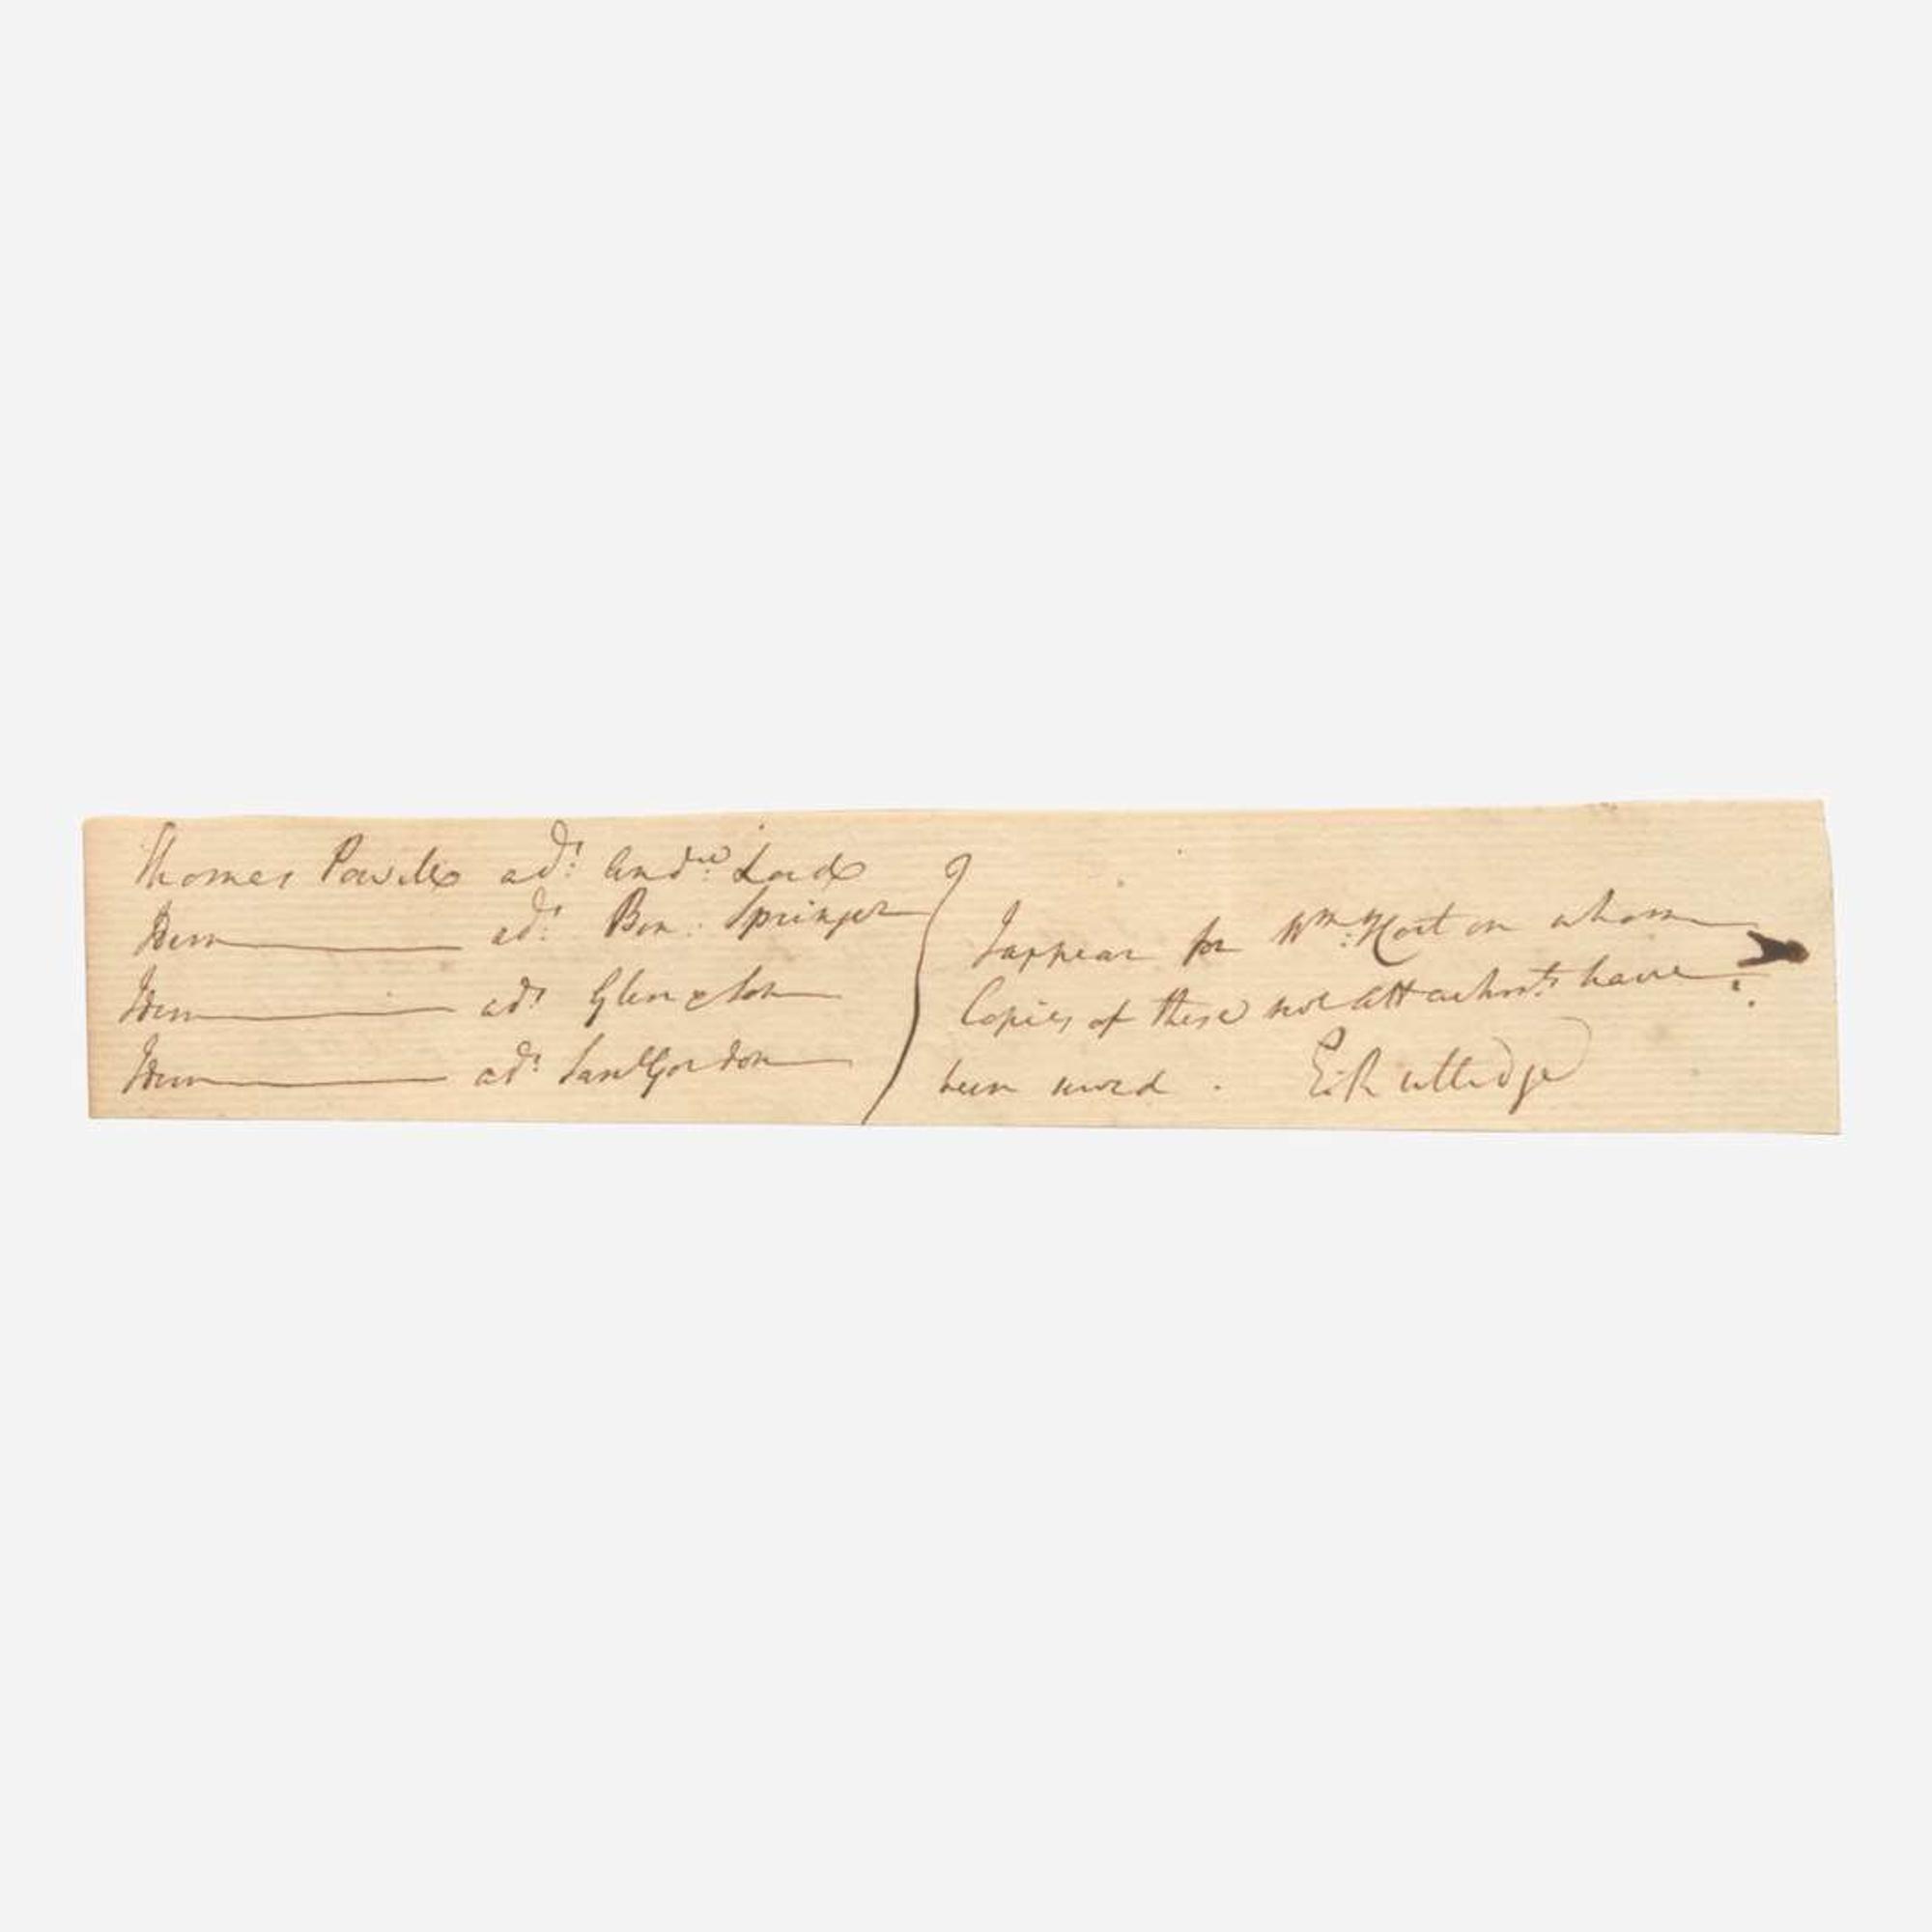 Thomas Powell ads. Andw. Lord
Idem ads. Ben. Springer
Idem ads. Glen & Son
Idem ads. Saml Gordon
I appear for Wm. Hort on whom
Copies of these attachmts have
been served. E: Rutledge